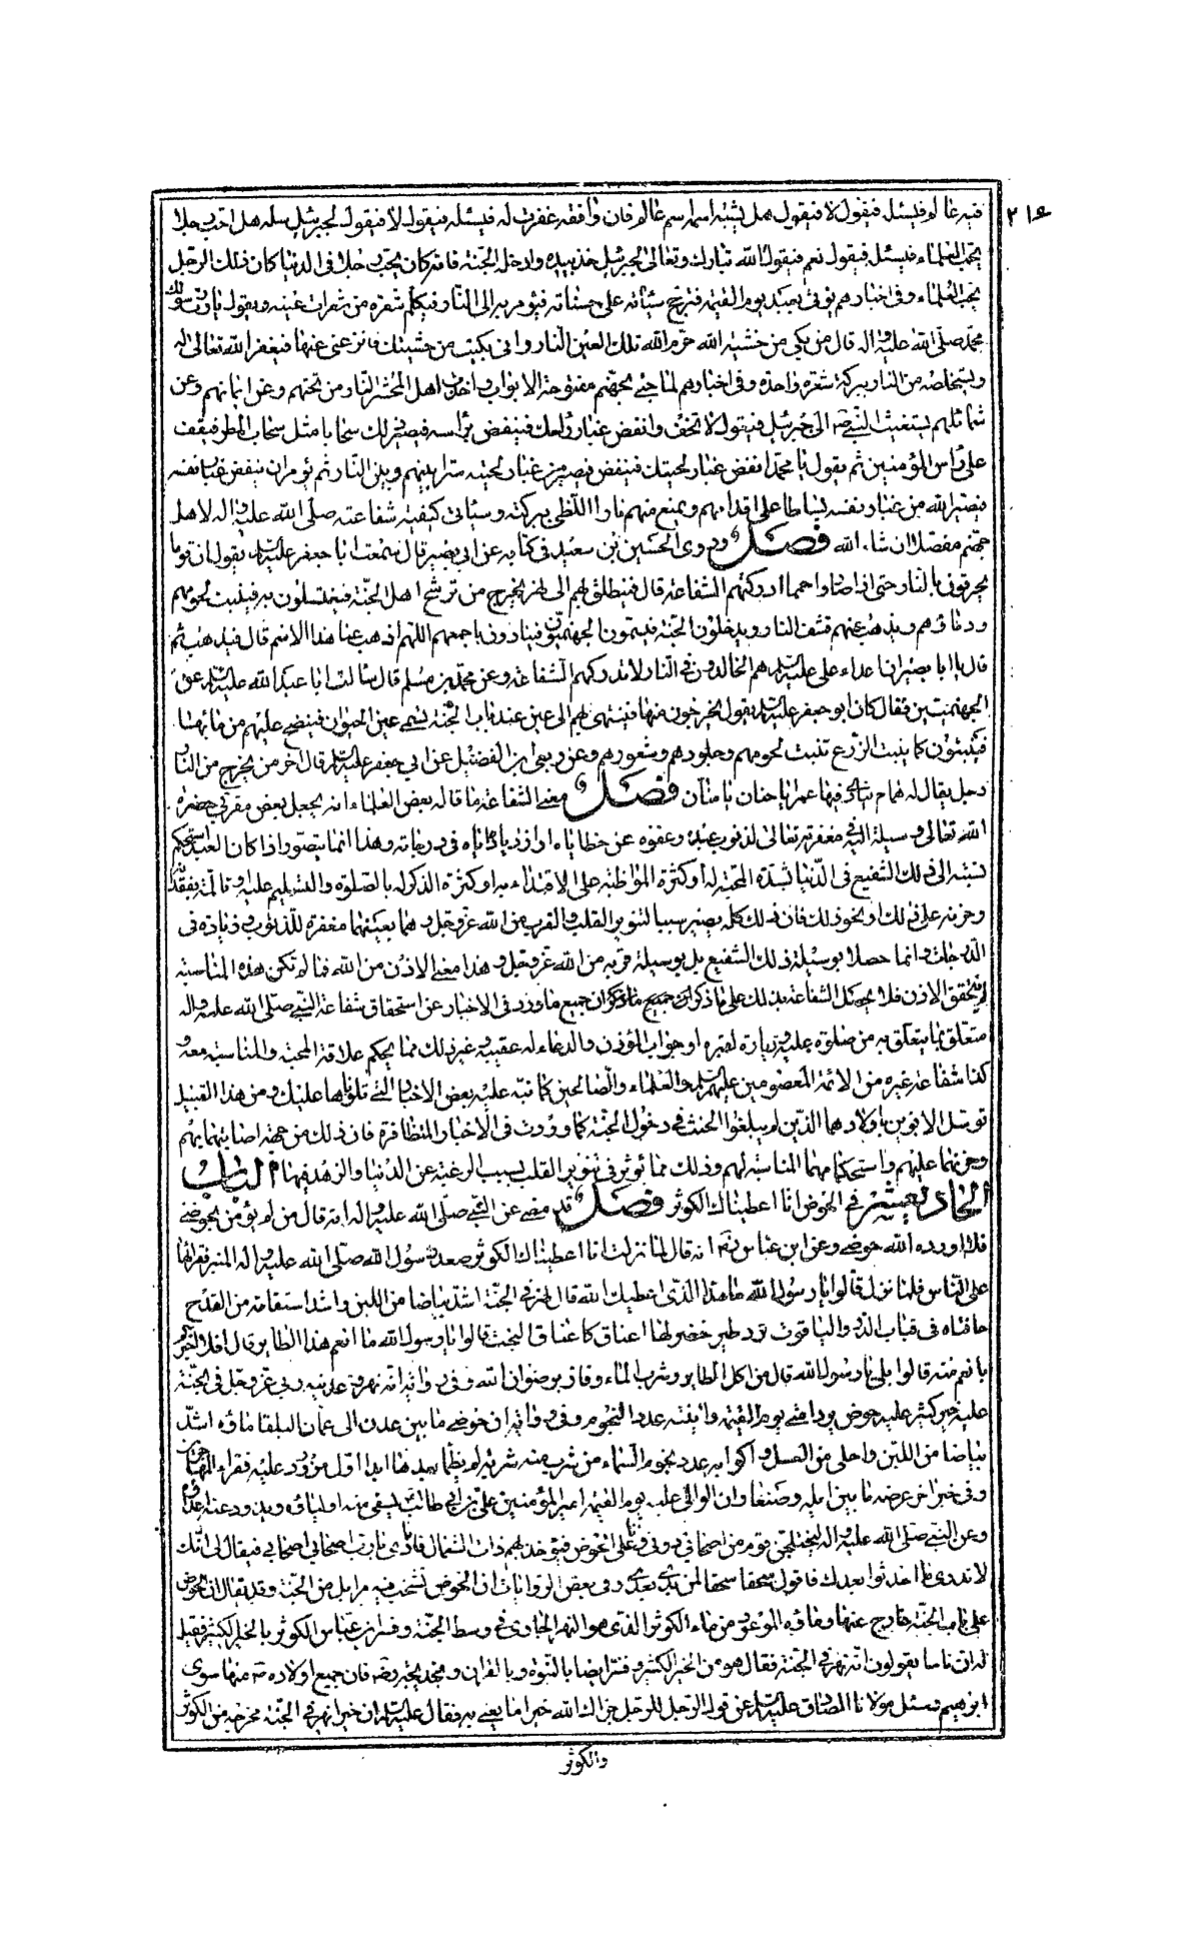 ٢١٤
فيه عالم فيسئل فيقول لا فيقول هل يشبه اسمه اسم عالم فان وافقه غفرت له فيسئله فيقول لا فيقول لجبرئيل سله هل احب رجلا
يحب العلماء فيسئل فيقول نعم فيقول الله تبارك وتعالى لجبرئيل خذ بيده وادخله الجنة فانه كان يحب رجلا في الدنيا كان ذلك الرجل
يحب العلماء وفي اخبارهم يؤتى بعبد يوم القيمة فترجح سيئاته على حسناته فيؤمر به الى النار فيكلم شعرة من شعرات عينيه ويقول يا رب رسولك
محمد صلى الله عليه واله قال من بكى من خشية الله حرم الله تلك العين النار واني بكيت من خشيتك فيغفر الله تعالى له
ويستخلصه من النار ببركة شعرة واحدة وفي اخبارهم لما جئ بجهنم مفتوحة الابواب اهل المحشر النار ومن تحتهم وعن ايمانهم وعن
شمائلهم يستغيث النبي ص الى جبرئيل فيقول لا تخف وانفض غبار رأسك فينفض رأسه فيصير ذلك سحابا مثل سحاب المطر فيقف
على رأس المؤمنين ثم يقول يا محمد انفض غبار لحيتك فينفض فيصير من غبار لحيته سترا بينهم وبين النار ثم يؤمر ان ينفض غبار نفسه
فيصير الله من غبار نفسه بساطا على اقدامهم ويمنع منهم نار اللظى ببركته وسيأتي كيفية شفاعته صلى الله عليه واله لاهل
جهنم مفصلا ان شاء الله فصل وروى الحسين بن سعيد في كتابه عن ابي بصير قال سمعت ابا جعفر عليه السلام يقول ان قوما
يحرقون بالنار حتى اذا صاروا حمما ادركتهم الشفاعة قال فينطلق بهم الى نهر يخرج من ترشح اهل الجنة فيغتسلون به فينبت لحومهم
ودماؤهم ويذهب عنهم قشف النار ويدخلون الجنة فيسمون الجهنميون فينادون باجمعهم اللهم اذهب عنا هذا الاسم قال فيذهب ثم
قال يا ابا بصير ان اعداء علي عليه السلام هم الخالدون في النار لا تدركهم الشفاعة وعن محمد بن مسلم قال سالت ابا عبد الله عليه السلام عن
الجهنميين فقال كان ابو جعفر عليه السلام يقول يخرجون منها فينتهى بهم الى عين عند باب الجنة تسمى عين الحيوان فينضح عليهم من مائها
فينبتون كما ينبت الزرع تنبت لحومهم وجلودهم وشعورهم وعن بن الفضيل عن ابي جعفر عليه السلام قال آخر من يخرج من النار
رجل يقال له همام فيها عمرا يا حنان يا منان فصل معنى الشفاعة ما قاله بعض العلماء انه يجعل بعض مقربي حضرة
الله تعالى وسيلة اليه في مغفرته تعالى لذنوب عبده وعفوه عن خطاياه او ازدياد اياه في درجاته وهذا انما يتصور اذا كان العبد استحكم
نسبته الى ذلك الشفيع في الدنيا بشدة المحبة له او كثرة المواظبة على الاقتداء به او كثرة الذكر له بالصلوة والتسليم عليه
وحزنه على ذلك او نحو ذلك فان ذلك كله يصير سببا لتنوير القلب والقرب من الله عز وجل وهما بعينهما مغفرة للذنوب وزيادة في
الدرجات وانما حصلا بوسيلة ذلك الشفيع بل بوسيلة قربه من الله عز وجل وهذا معنى الاذن من الله فما لم تكن هذه المناسبة
لم يتحقق الاذن فلا يحصل الشفاعة بذلك على ما ذكر ان جميع ما ورد في الاخبار عن استحقاق شفاعة النبي صلى الله عليه واله
متعلق بما يتعلق به من صلوة عليه وزيارة لقبره او جواب المؤذن والدعاء له عقيبه وغير ذلك مما يحكم علاقة المحبة والمناسبة معه و
كذا شفاعة غيره من الائمة المعصومين عليهم السلام والعلماء والصالحين كما نبه عليه بعض الاخبار التي تلوناها عليك ومن هذا القبيل
توسل الابوين باولادهما الذين لم يبلغوا الحنث في دخول الجنة كما وردت في الاخبار المتظافرة فان ذلك من جهة اصابتهما بهم
وحزنهما عليهم واستحكامهما المناسبة لهم وذلك مما يؤثر في تنوير القلب بسبب الرغبة عن الدنيا والزهد فيها الباب
الحادي عشر في الحوض انا اعطيناك الكوثر فصل قد مضى عن النبي صلى الله عليه واله انه قال من لم يؤمن بحوضي
فلا اورده الله حوضي وعن ابن عباس انه قال لما نزلت انا اعطيناك الكوثر صعد رسول الله صلى الله عليه واله المنبر فقراها
على الناس فلما نزل قالوا يا رسول الله ما هذا الذي اعطيك الله قال نهر في الجنة اشد بياضا من اللبن واشد استقامة من القدح
حافتاه في قباب الدر والياقوت ترد طير خضر لها اعناق كاعناق البخت قالوا يا رسول الله ما انعم هذا الطاير قال افلا اخبركم
بانعم منه قالوا بلى يا رسول الله قال من اكل الطاير وشرب الماء وفاز برضوان الله وفي رواية انه نهر وعدنيه ربي عز وجل في الجنة
عليه خير كثير عليه حوض يرد امتي يوم القيمة وانيته عدد النجوم وفي رواية ان حوضي ما بين عدن الى عمان البلقاء ماؤه اشد
بياضا من اللبن واحلى من العسل واكوابه عدد نجوم السماء من شرب منه شربة لم يظمأ بعدها ابدا اول من يرد عليه فقراء المهاجرين
وفي خبر اخر عرضه ما بين ايله وصنعا وان الوالي عليه يوم القيمة امير المؤمنين علي بن ابي طالب يسقي منه اولياؤه ويذود عنه اعداؤه
وعن النبي صلى الله عليه واله ليختلجن قوم من اصحابي دوني وانا على الحوض فيؤخذ بهم ذات الشمال فانادي يا رب اصحابي اصحابي فيقال لي انك
لا تدري ما احدثوا بعدك فاقول سحقا سحقا لمن بدل بعدي وفي بعض الروايات ان الحوض تشخب فيه ميزابل من الجنة وقد يقال ان الحوض
على باب الجنة خارج عنها وماؤه الموعود من ماء الكوثر الذي هو النهر الجاري في وسط الجنة وفسر ابن عباس الكوثر بالخير الكثير فقيل
له ان ناسا يقولون انه نهر في الجنة فقال هو من الخير الكثير وفسر ايضا بالنبوة وبالقران فان جميع اولاده ص منها سوى
ابرهيم وسئل مولانا الصادق عليه السلام عن قول الرجل للرجل جزاك الله خيرا ما يعنى به فقال عليه السلام ان خيرا نهر في الجنة مخرجه من الكوثر
والكوثر